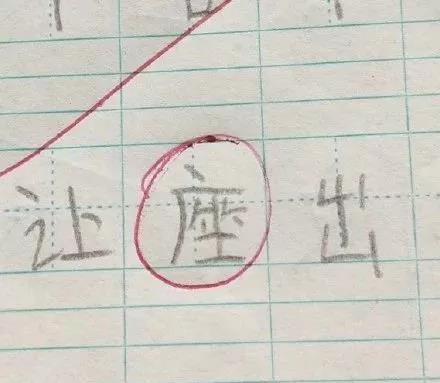 让座出